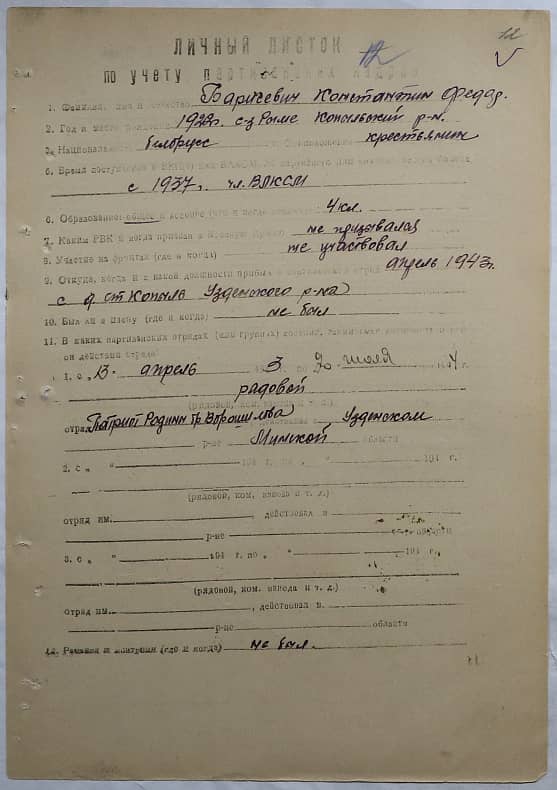 12
12
ЛИЧНЫЙ ЛИСТОК
по учету партизанских кадров
1. Фамилия, имя и отчество Баркевич Константин Федор.
2. Год и место рождения 1922г. с-з Рыме Копыльский р-н.
3. Национальность белорусс крестьянин
5. Время
с 1937г. чл. ВЛКСМ
6. Образование общее и военное (что и когда окончил) 4 кл.
7. Каким РВК и когда призван в Красную Армию не призывался
8. Участие на фронтах (где и когда) не участвовал
9. Откуда, когда и с какой должности прибыл в партизанский отряд апрель 1943г.
с д. ст Копыль Узденского р-на
10. Был ли в плену (где и когда) не был
11. В каких партизанских отрядах (или группах) состоял,
1. с „13" апрель 194 3 г. по „20" июля 1944 г.
радовой
(рядовой, ком. взвода и т. д.)
отряд Патриот Родины бр. Ворошилова действовал в Узденском
р-не Минской области
2. с „ " 194 г. по „ " 194 г.
(рядовой, ком. взвода и т. д.)
отряд им. , действовал в
р-не области
3. с „ " 194 г. по „ " 194 г.
(рядовой, ком. взвода и т. д.)
отряд им. , действовал в
р-не области
12. Ранения и контузии (где и когда) не был.